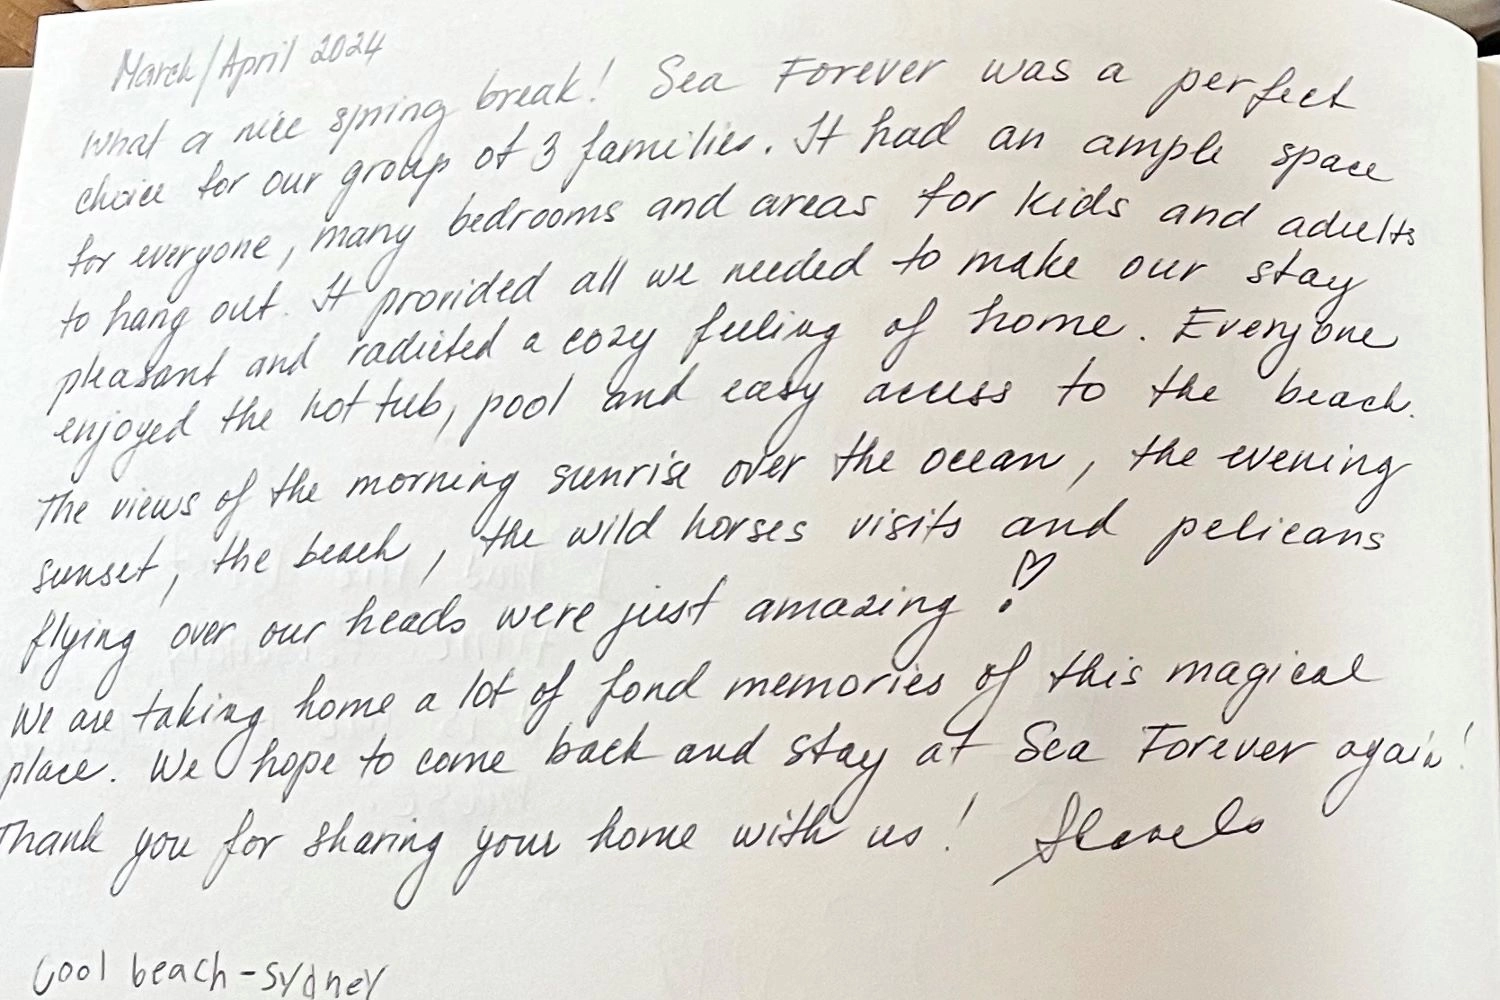 March/April 2024
What a nice spring break! Sea Forever was a perfect
choice for our group of 3 families. It had an ample space
for everyone, many bedrooms and areas for kids and adults
to hang out. It provided all we needed to make our stay
pleasant and radieted a cozy feeling of home. Everyone
enjoyed the hot tub, pool and easy access to the beach.
The views of the morning sunrise over the ocean, the evening
sunset, the beach, the wild horses visits and pelicans
flying over our heads were just amazing!
We are taking home a lot of fond memories of this magical
place. We hope to come back and stay at Sea Forever again!
Thank you for sharing your home with us!
Cool beach-Sydney